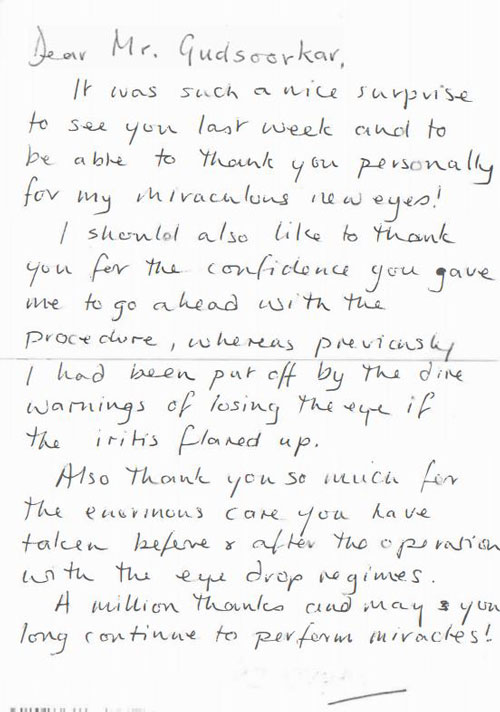 Dear Mr. Gudsoorkar,
It was such a nice surprise
to see you last week and to
be able to thank you personally
for my miraculous new eyes!
I should also like to thank
you for the confidence you gave
me to go ahead with the
procedure, whereas previously
I had been put off by the dire
warnings of losing the eye if
the iritis flared up.
Also thank you so much for
the enormous care you have
taken before & after the operation
with the eye drop regimes.
A million thanks and may you
long continue to perform miracles!